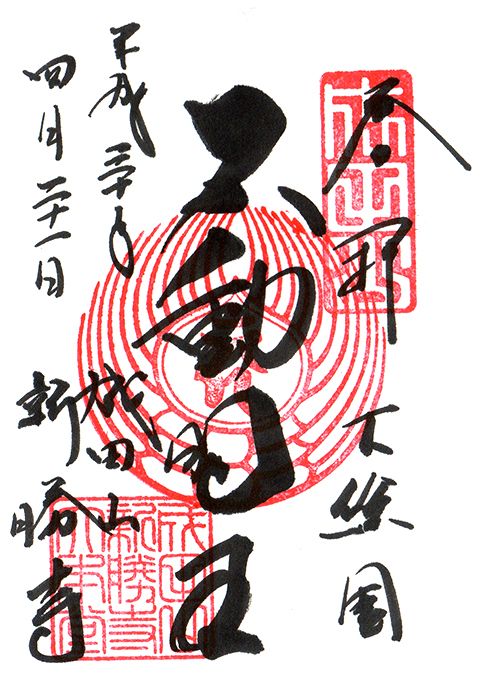 奉拝
下総國
成田山
不動明王
平成三十年
四月二十一日
成田山
新勝寺
成田山
新勝寺
大本堂